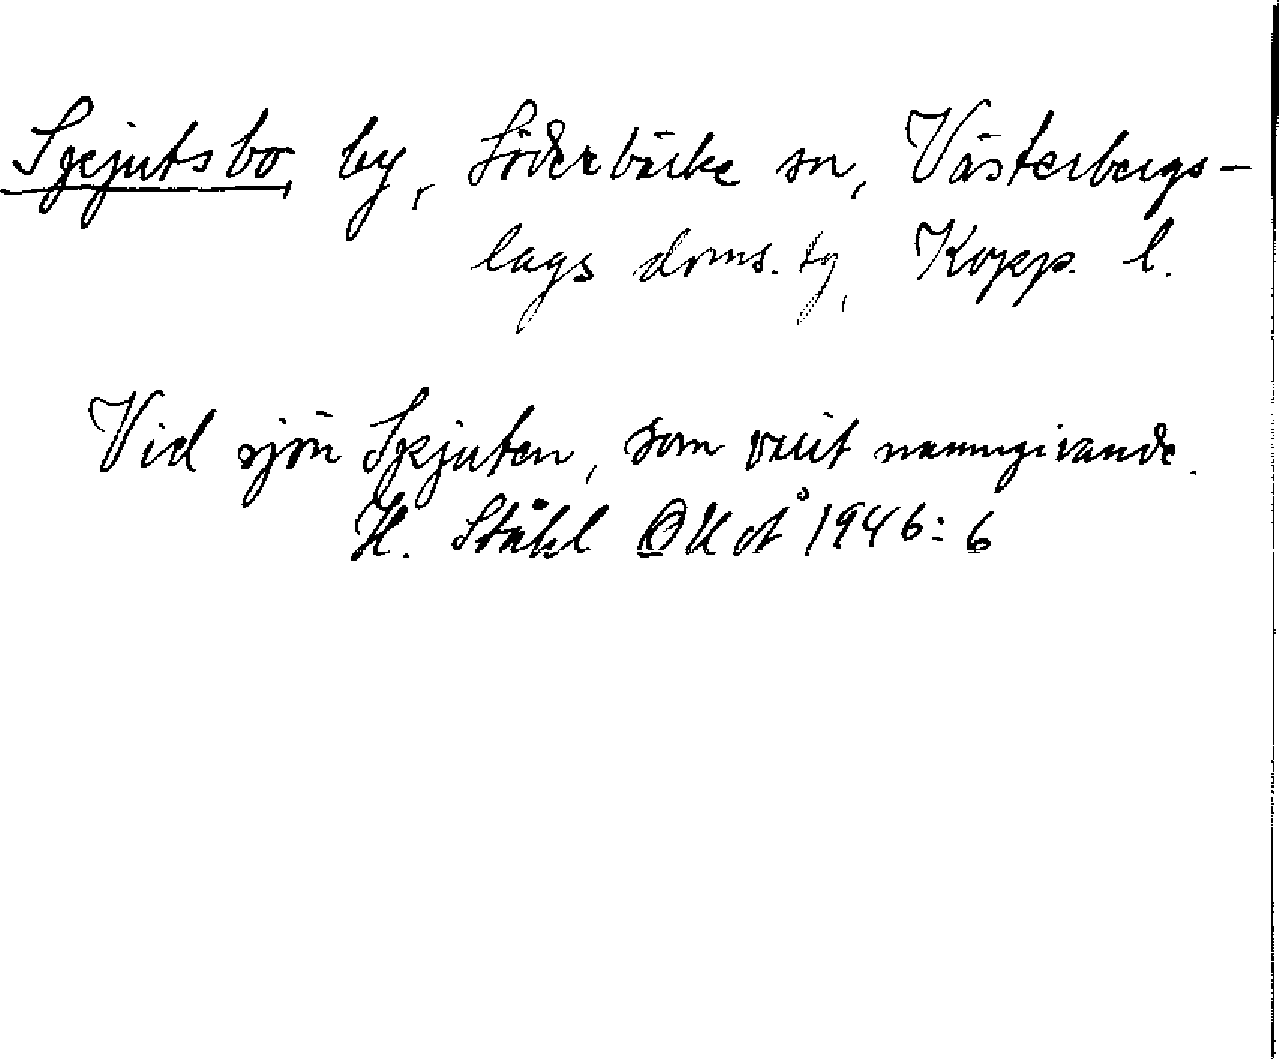 Spjutsbo, by, Söderbärke sn, Västerbergs-
lags doms. tg, Kopp. l.
Vid sjön Spjuten, som varit namngivande.
H. Ståhl OUÅ 1946: 6